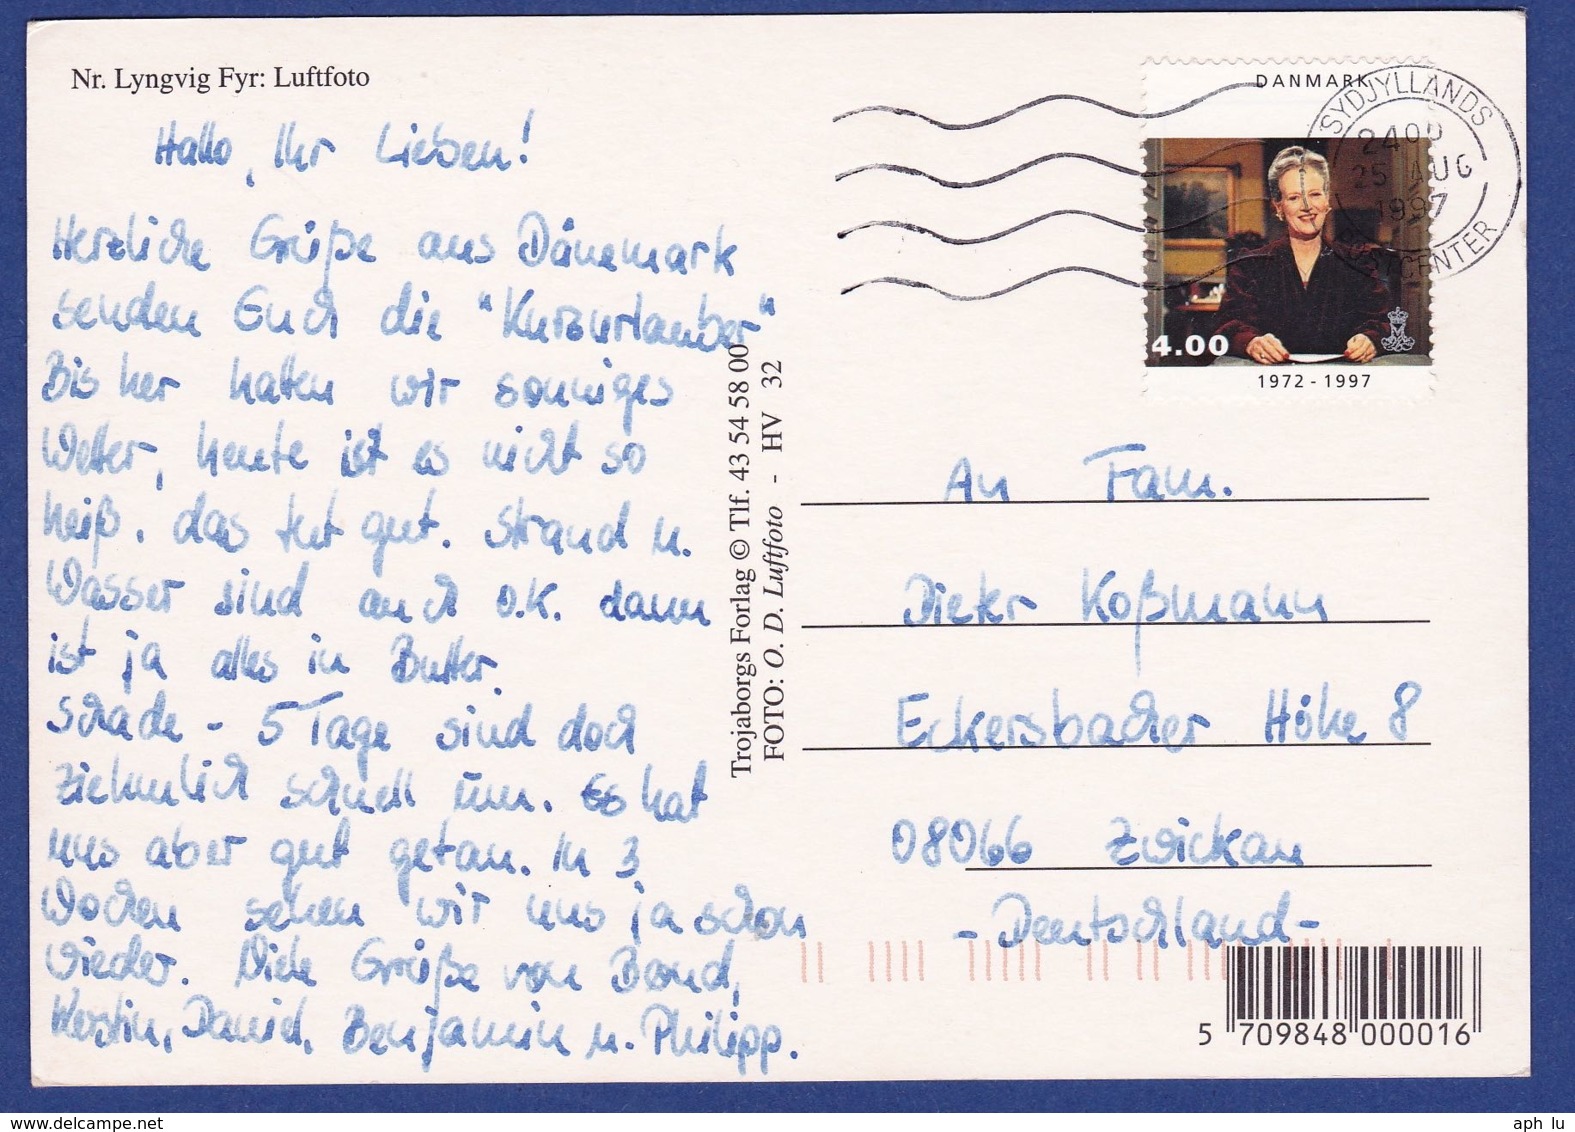 Nr. Lyngvig Fyr: Luftfoto
Hallo, Ihr Lieben!
Herzliche Grüße aus Dänemark
senden Euch die "Kurzurlauber"
Bisher hatten wir sonniges
Wetter, heute ist es nicht so
heiß, das tut gut. Strand u.
Wasser sind auch o.k. dann
ist ja alles in Butter.
Schade - 5 Tage sind doch
ziehmlich schnell um. Es hat
uns aber gut getan. In 3
Wochen sehen wir uns ja schon
wieder. Grüße von
Kerstin, David, Benjamin u. Philipp.
Trojaborgs Forlag © Tlf. 43 54 58 00
FOTO: O. D. Luftfoto - HV 32
DANMARK
4.00
1972 - 1997
SYDJYLLANDS
POSTCENTER
25 AUG
1997
An Fam.
Dieter Koßmann
Eckersbacher Höhe 8
08066 Zwickau
- Deutschland -
5 709848 000016
aph lu